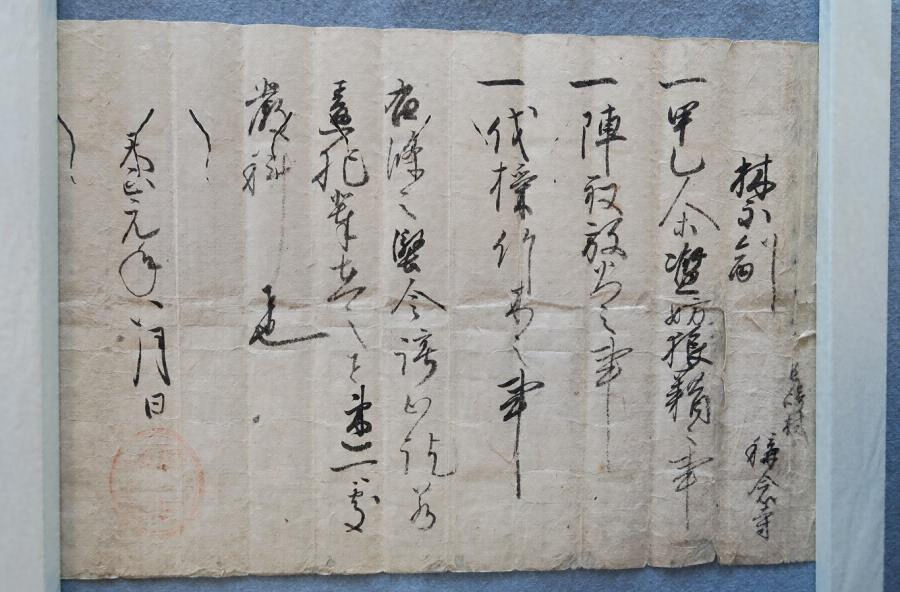 禁制
称念寺
一甲乙人等濫妨狼藉之事
一陣取放火之事
一伐採竹木之事
右條々堅令停止訖若
違犯輩在之者速可處
嚴科者也
天正元年八月日